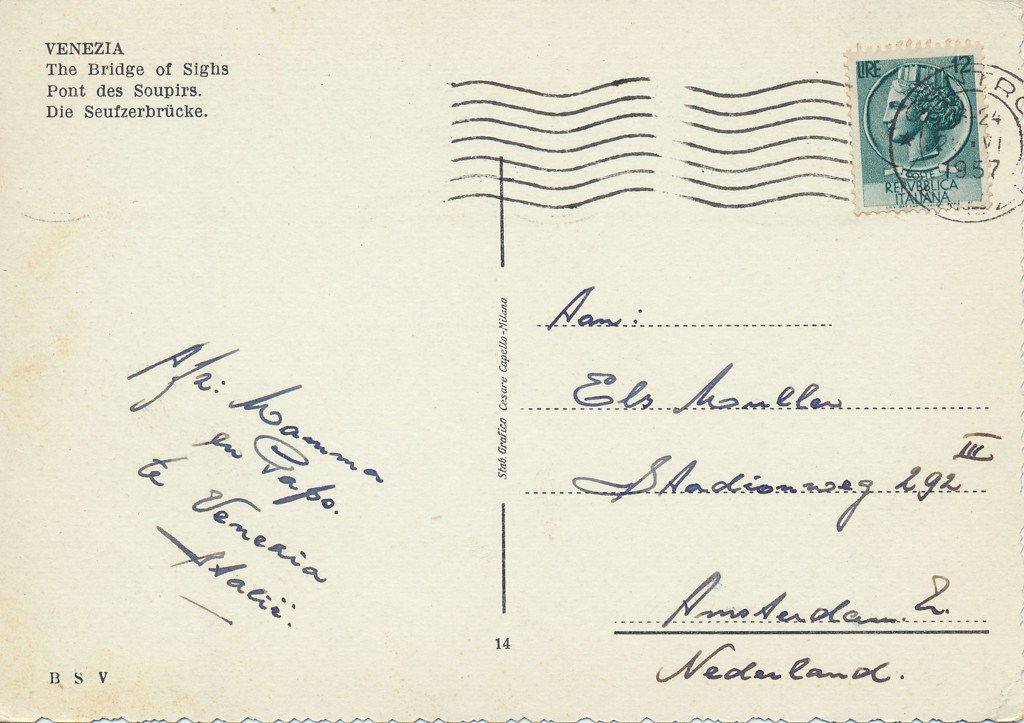 VENEZIA
The Bridge of Sighs
Pont des Soupirs.
Die Seufzerbrücke.
LIRE 12
POSTE
REPVBBLICA
ITALIANA
24
VI
1957
Afz: Mamma
en Paps.
te Venezia
Italië.
Stab. Grafico Cesare Capello-Milano
Aan:
Els Muller
Stadionweg 292 III
Amsterdam Z.
Nederland.
14
B S V